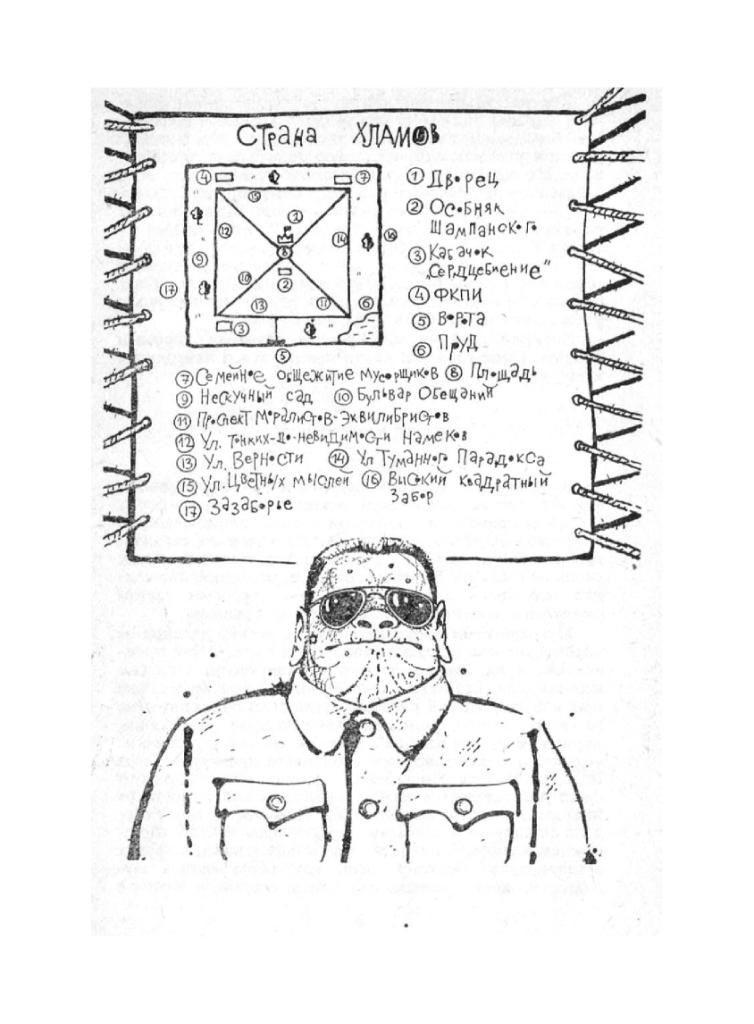 Страна Хламов
④ ⑦
⑮
①
⑫ ⑭ ⑯
⑧
⑨
⑩ ②
⑰
⑬ ⑪ ⑥
③
⑤
① Дворец
② Особняк
Шампанского
③ Кабачок
„Сердцебиение"
④ ФКПИ
⑤ Ворта
⑥ Пруд
⑦ Семейное общежитие мусорщиков ⑧ Площадь
⑨ Нескучный сад ⑩ Бульвар Обещаний
⑪ Проспект Моралистов-Эквилибристов
⑫ Ул. тонких-до-невидимости намеков
⑬ Ул. Верности ⑭ Ул Туманного Парадокса
⑮ Ул. Цветных мыслей ⑯ Высокий квадратный
Забор
⑰ Зазаборье